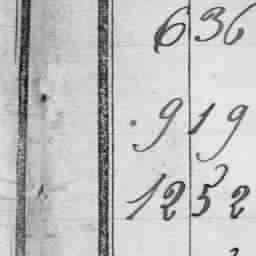 636
919
1252